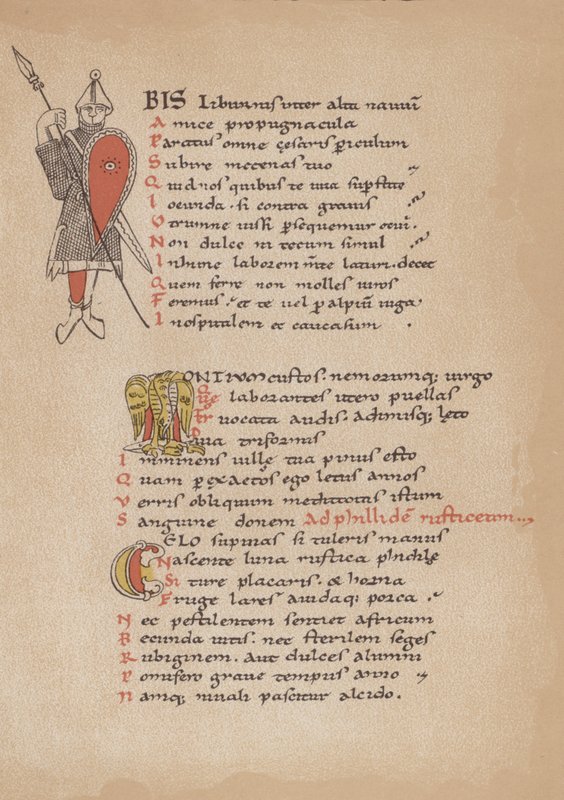 IBIS Liburnis inter alta naviu̅
Amice propugnacula
Paratus omne çesaris ꝑiculum
Subire mecenas tuo
Quid nos quibus te uita sup̅stite
Iocunda · si contra grauis
Otrumne iussi ꝑsequemur
Non dulce ni tecum simul
In hunc laborem m̅te laturi · decet
Quem ferre non molles uiros
Feremus · et te uel ꝑ alpiu̅ iuga
Inospitalem et caucasum ·
MONTIVM custos · nemorumq; uirgo
Quę laborantes utero puellas
Ter uocata audis · adimisq; lęto
Diua triformis
Imminens uillę tua pinus esto
Quam ꝑ exactos ego letus annos
Verris obliquum meditantis istum
Sanguine donem Ad phillidē rusticam
CELO supinas si tuleris manus
Nascente luna rustica phidilę
Si ture placaris · & horna
Fruge lares auidaq; porca
Nec pestilentem sentiet africum
Fecunda uitis · nec sterilem seges
Rubiginem · Aut dulces alumni
Pomifero graue tempus anno
Namq; niuali pascitur alcido ·